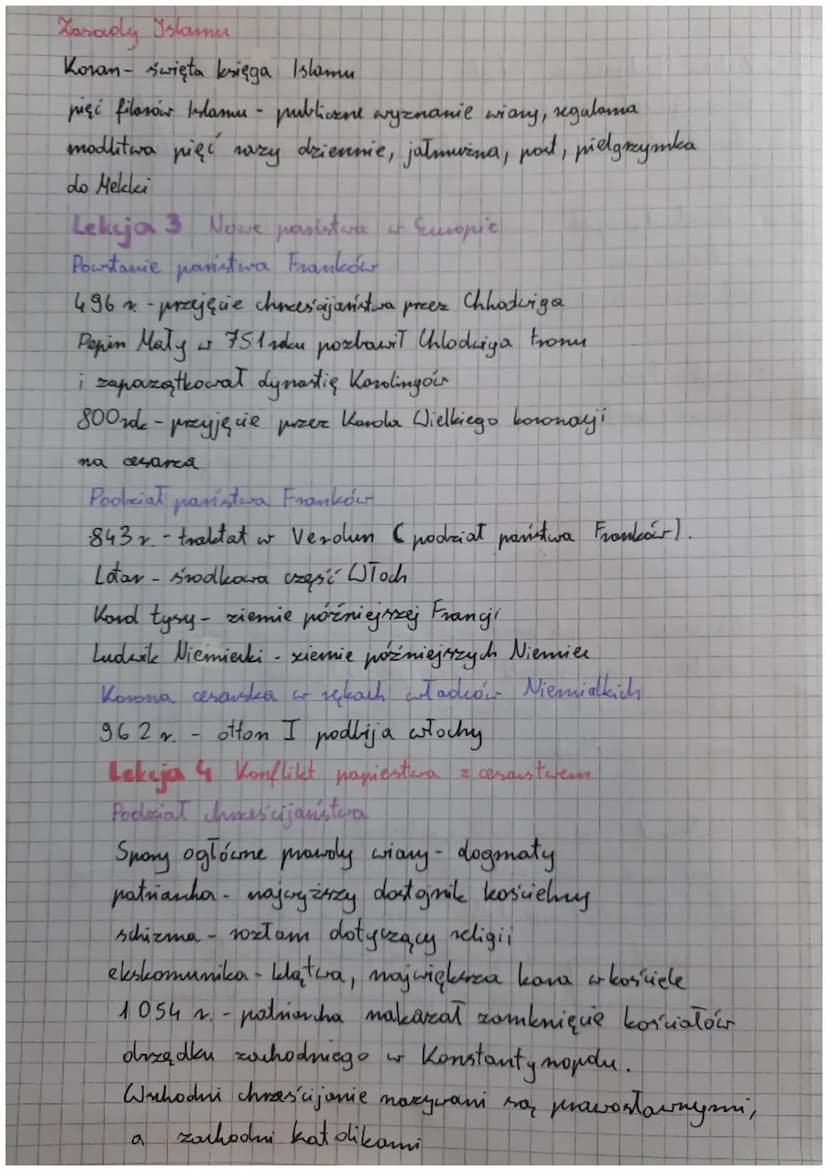 Zasady Islamu
Koran - święta księga Islamu
pięć filarów Islamu - publiczne wyznanie wiary, regularna
modlitwa pięć razy dziennie, jałmużna, post, pielgrzymka
do Mekki
Lekcja 3 Nowe państwa w Europie
Powstanie państwa Franków
496 r. - przejęcie chrześcijaństwa przez Chhodwiga
Pepin Mały w 751 roku pozbawił Chlodwiga tronu
i zapoczątkował dynastię Karolingów
800 rok - przyjęcie przez Karola Wielkiego koronacji
na cesarza
Podział państwa Franków
843 r. - traktat w Verdun (podział państwa Franków).
Lotar - środkowa część Włoch
Karol Łysy - ziemie późniejszej Francji
Ludwik Niemiecki - ziemie późniejszych Niemiec
Korona cesarska w rękach władców Niemieckich
962 r. - otton I podbija włochy
Lekcja 4 Konflikt papiestwa z cesarstwem
Podział chrześcijaństwa
Spory ogłówne prawdy wiary - dogmaty
patriarcha - najwyższy dostojnik kościelny
schizma - rozłam dotyczący religii
ekskomunika - klątwa, największa kara w kościele
1054 r. - patriarcha nakazał zamknięcie kościałów
obrządku zachodniego w Konstantynopolu.
Wschodni chrześcijanie nazywani są prawosławnymi,
a zachodni katolikami